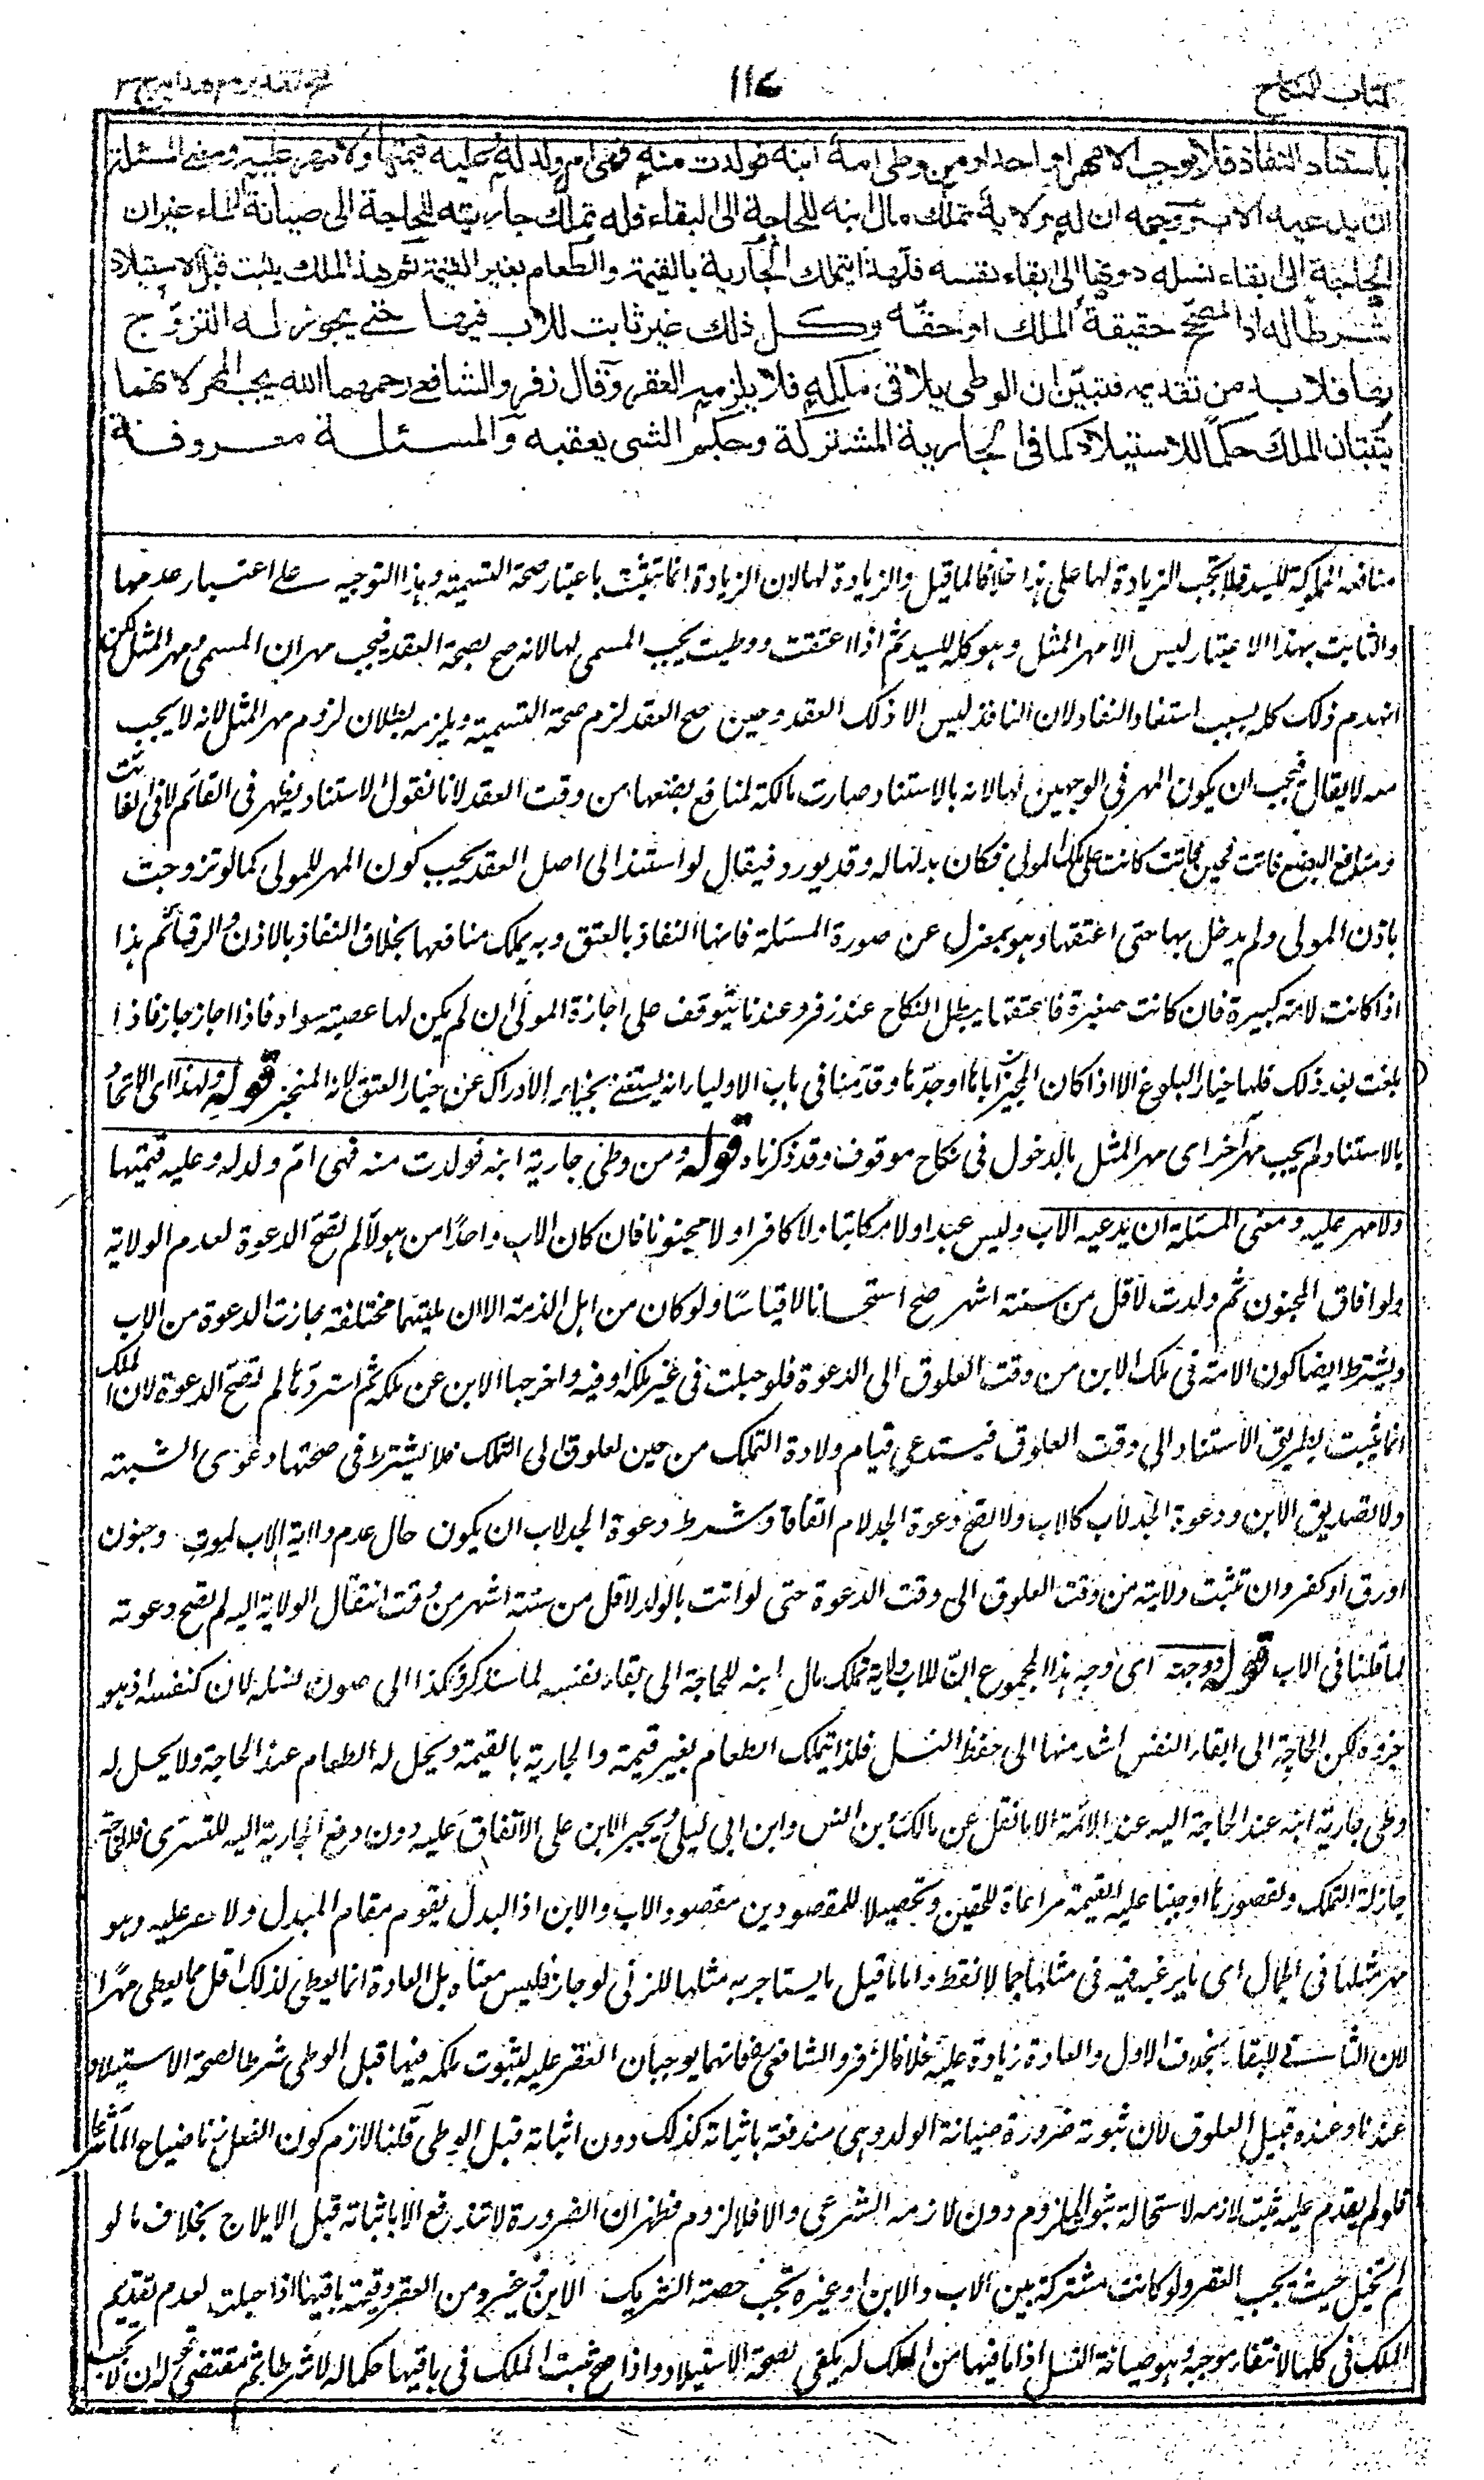 كتاب النكاح
١١٧
فتح القدير مع هداية ج ٢
باستناد النفاذ فلا يوجب الا مهرا واحدا ومن وطى امة ابنه فولدت منه فهى ام ولد له وعليه قيمتها ولا مهر عليه ومعنى المسئلة
ان يدعيه الاب ووجهه ان له ولاية تملك مال ابنه للحاجة الى البقاء فله تملك جاريته للحاجة الى صيانة الماء غير ان
الحاجة الى بقاء نسله دونها الى بقاء نفسه فلهذا يتملك الجارية بالقيمة والطعام بغير القيمة ثم هذا الملك يثبت قبل الاستيلاد
شرطا له اذ المصحح حقيقة الملك او حقه وكل ذلك غير ثابت للاب فيها حتى يجوز له التزوج
بها فلا بد من تقديمه فتبين ان الوطى يلاقى ملكه فلا يلزمه العقر وقال زفر والشافعى رحمهما الله يجب المهر لانهما
يثبتان الملك حكما للاستيلاد كما فى الجارية المشتركة وحكم الشى يعقبه والمسئلة معروفة
منافعه المملوكة للسيد فلا تجب الزيادة لها على هذا خلافا لما قيل والزيادة لها لان الزيادة انما تثبت باعتبار صحة التسمية وهذا التوجيه على اعتبار عدمها
والثابت بهذا الاعتبار ليس الا مهر المثل وهو كله للسيد ثم اذا اعتقت ووطيت يجب المسمى لها لانه صح بصحة العقد فيجب مهران المسمى ومهر المثل لكن
انهدم ذلك كله بسبب استناد النفاد لان النافذ ليس الا ذلك العقد وحين صح العقد لزم صحة التسمية ويلزمه بطلان لزوم مهر المثل لانه لا يجب
معه لا يقال فيجب ان يكون المهر فى الوجهين لها لانه بالاستناد صارت مالكة لمنافع بضعها من وقت العقد لانا نقول الاستناد يظهر فى القائم لا فى الفائت
ومنافع البضع فاتت فحين فاتت كانت على ملك المولى فكان بدلها له وقد يورد فيقال لو استند الى اصل العقد يجب كون المهر للمولى كما لو تزوجت
باذن المولى ولم يدخل بها حتى اعتقها وهو بمعزل عن صورة المسئلة فانها النفاذ بالعتق وبه يملك منافعها بخلاف النفاذ بالاذن والرق قائم هذا
اذا كانت الامة كبيرة فان كانت صغيرة فاعتقها يبطل النكاح عند زفر وعندنا يتوقف على اجازة المولى ان لم يكن لها عصبة سواه فاذا اجاز جاز فاذا
بلغت بعد ذلك فلها خيار البلوغ الا اذا كان المجيز اباها او جدها وقد قدمنا فى باب الاولياء انه يستغنى بخيار الادراك عن خيار العتق لانه المنجز قوله ولهذا اى الاتحاد
بالاستناد لم يجب مهر آخر اى مهر المثل بالدخول فى نكاح موقوف وقد ذكرناه قوله ومن وطى جارية ابنه فولدت منه فهى ام ولد له وعليه قيمتها
ولا مهر عليه ومعنى المسئلة ان يدعيه الاب وليس عبدا ولا مكاتبا ولا كافرا ولا مجنونا فان كان الاب واحدا من هولاء لم تصح الدعوة لعدم الولاية
ولو افاق المجنون ثم ولدت لاقل من ستة اشهر صح استحسانا لا قياسا ولو كان من اهل الذمة الا ان ملتيهما مختلفة جازت الدعوة من الاب
ويشترط ايضا كون الامة فى ملك الابن من وقت العلوق الى الدعوة فلو حبلت فى غير ملكه او فيه واخرجها الابن عن ملكه ثم استردها لم تصح الدعوة لان الملك
انما يثبت بطريق الاستناد الى وقت العلوق فيستدعى قيام ولاية التملك من حين العلوق الى التملك فلا يشترط فى صحتها دعوى الشبهة
ولا تصديق الابن ودعوة الجد لاب كالاب ولا تصح دعوة الجد لام اتفاقا وشرط دعوة الجد لاب ان يكون حال عدم ولاية الاب لموت وجنون
او رق او كفر وان تثبت ولايته من وقت العلوق الى وقت الدعوة حتى لو اتت بالولد لاقل من ستة اشهر من وقت انتقال الولاية اليه لم تصح دعوته
لما قلنا فى الاب قوله ووجهه اى وجه هذا المجموع ان للاب ولاية تملك مال ابنه للحاجة الى بقاء نفسه لما سنذكر فكذا الى صون نسله لانه كنفسه اذ هو
جزؤه لكن الحاجة الى ابقاء النفس اشد منها الى حفظ النسل فلذا يتملك الطعام بغير قيمة والجارية بالقيمة ويحل له الطعام عند الحاجة ولا يحل له
وطى جارية ابنه عند الحاجة اليه عند الائمة الا ما نقل عن مالك بن انس وابن ابى ليلى ويجبر الابن على الانفاق عليه دون دفع الجارية اليه للتسرى فللحاجة
جاز له التملك ولقصورها اوجبنا عليه القيمة مراعاة للحقين وتحصيلا للمقصودين مقصود الاب والابن اذ البدل يقوم مقام المبدل ولا عقر عليه وهو
مهر مثلها فى الجمال اى ما يرغب فيه فى مثلها جمالا فقط واما ما قيل ما يستاجر به مثلها للزنى لو جاز فليس معناه بل العادة انما يعطى لذلك اقل مما يعطى مهرا
لان الثانى للبقاء بخلاف الاول والعادة زيادة عليه خلافا لزفر والشافعى رح فانهما يوجبان العقر عليه لثبوت ملكه فيها قبل الوطى شرطا لصحة الاستيلاد
عندنا وعنده قبيل العلوق لان ثبوته ضرورة صيانة الولد وهى مندفعة باثباته كذلك دون اثباته قبل الوطى قلنا لازم كون الفعل زنا ضياع الماء شرعا
فلو لم يقدم عليه ثبت لازمه لاستحالة ثبوت الملزوم دون لازمه الشرعى والا فلا لزوم فظهر ان الضرورة لا تندفع الا باثباته قبل الايلاج بخلاف ما لو
لم تحبل حيث يجب العقر ولو كانت مشتركة بين الاب والابن او غيره تجب حصة الشريك الابن وغيره من العقر وقيمة باقيها اذا حبلت لعدم تقديم
الملك فى كلها لانتفاء موجبه وهو صيانة النسل اذ ما فيها من الملك له يكفى لصحة الاستيلاد واذا صح ثبت الملك فى باقيها حكما له لا شرطا ثم مقتضى قوله ان لا يجب